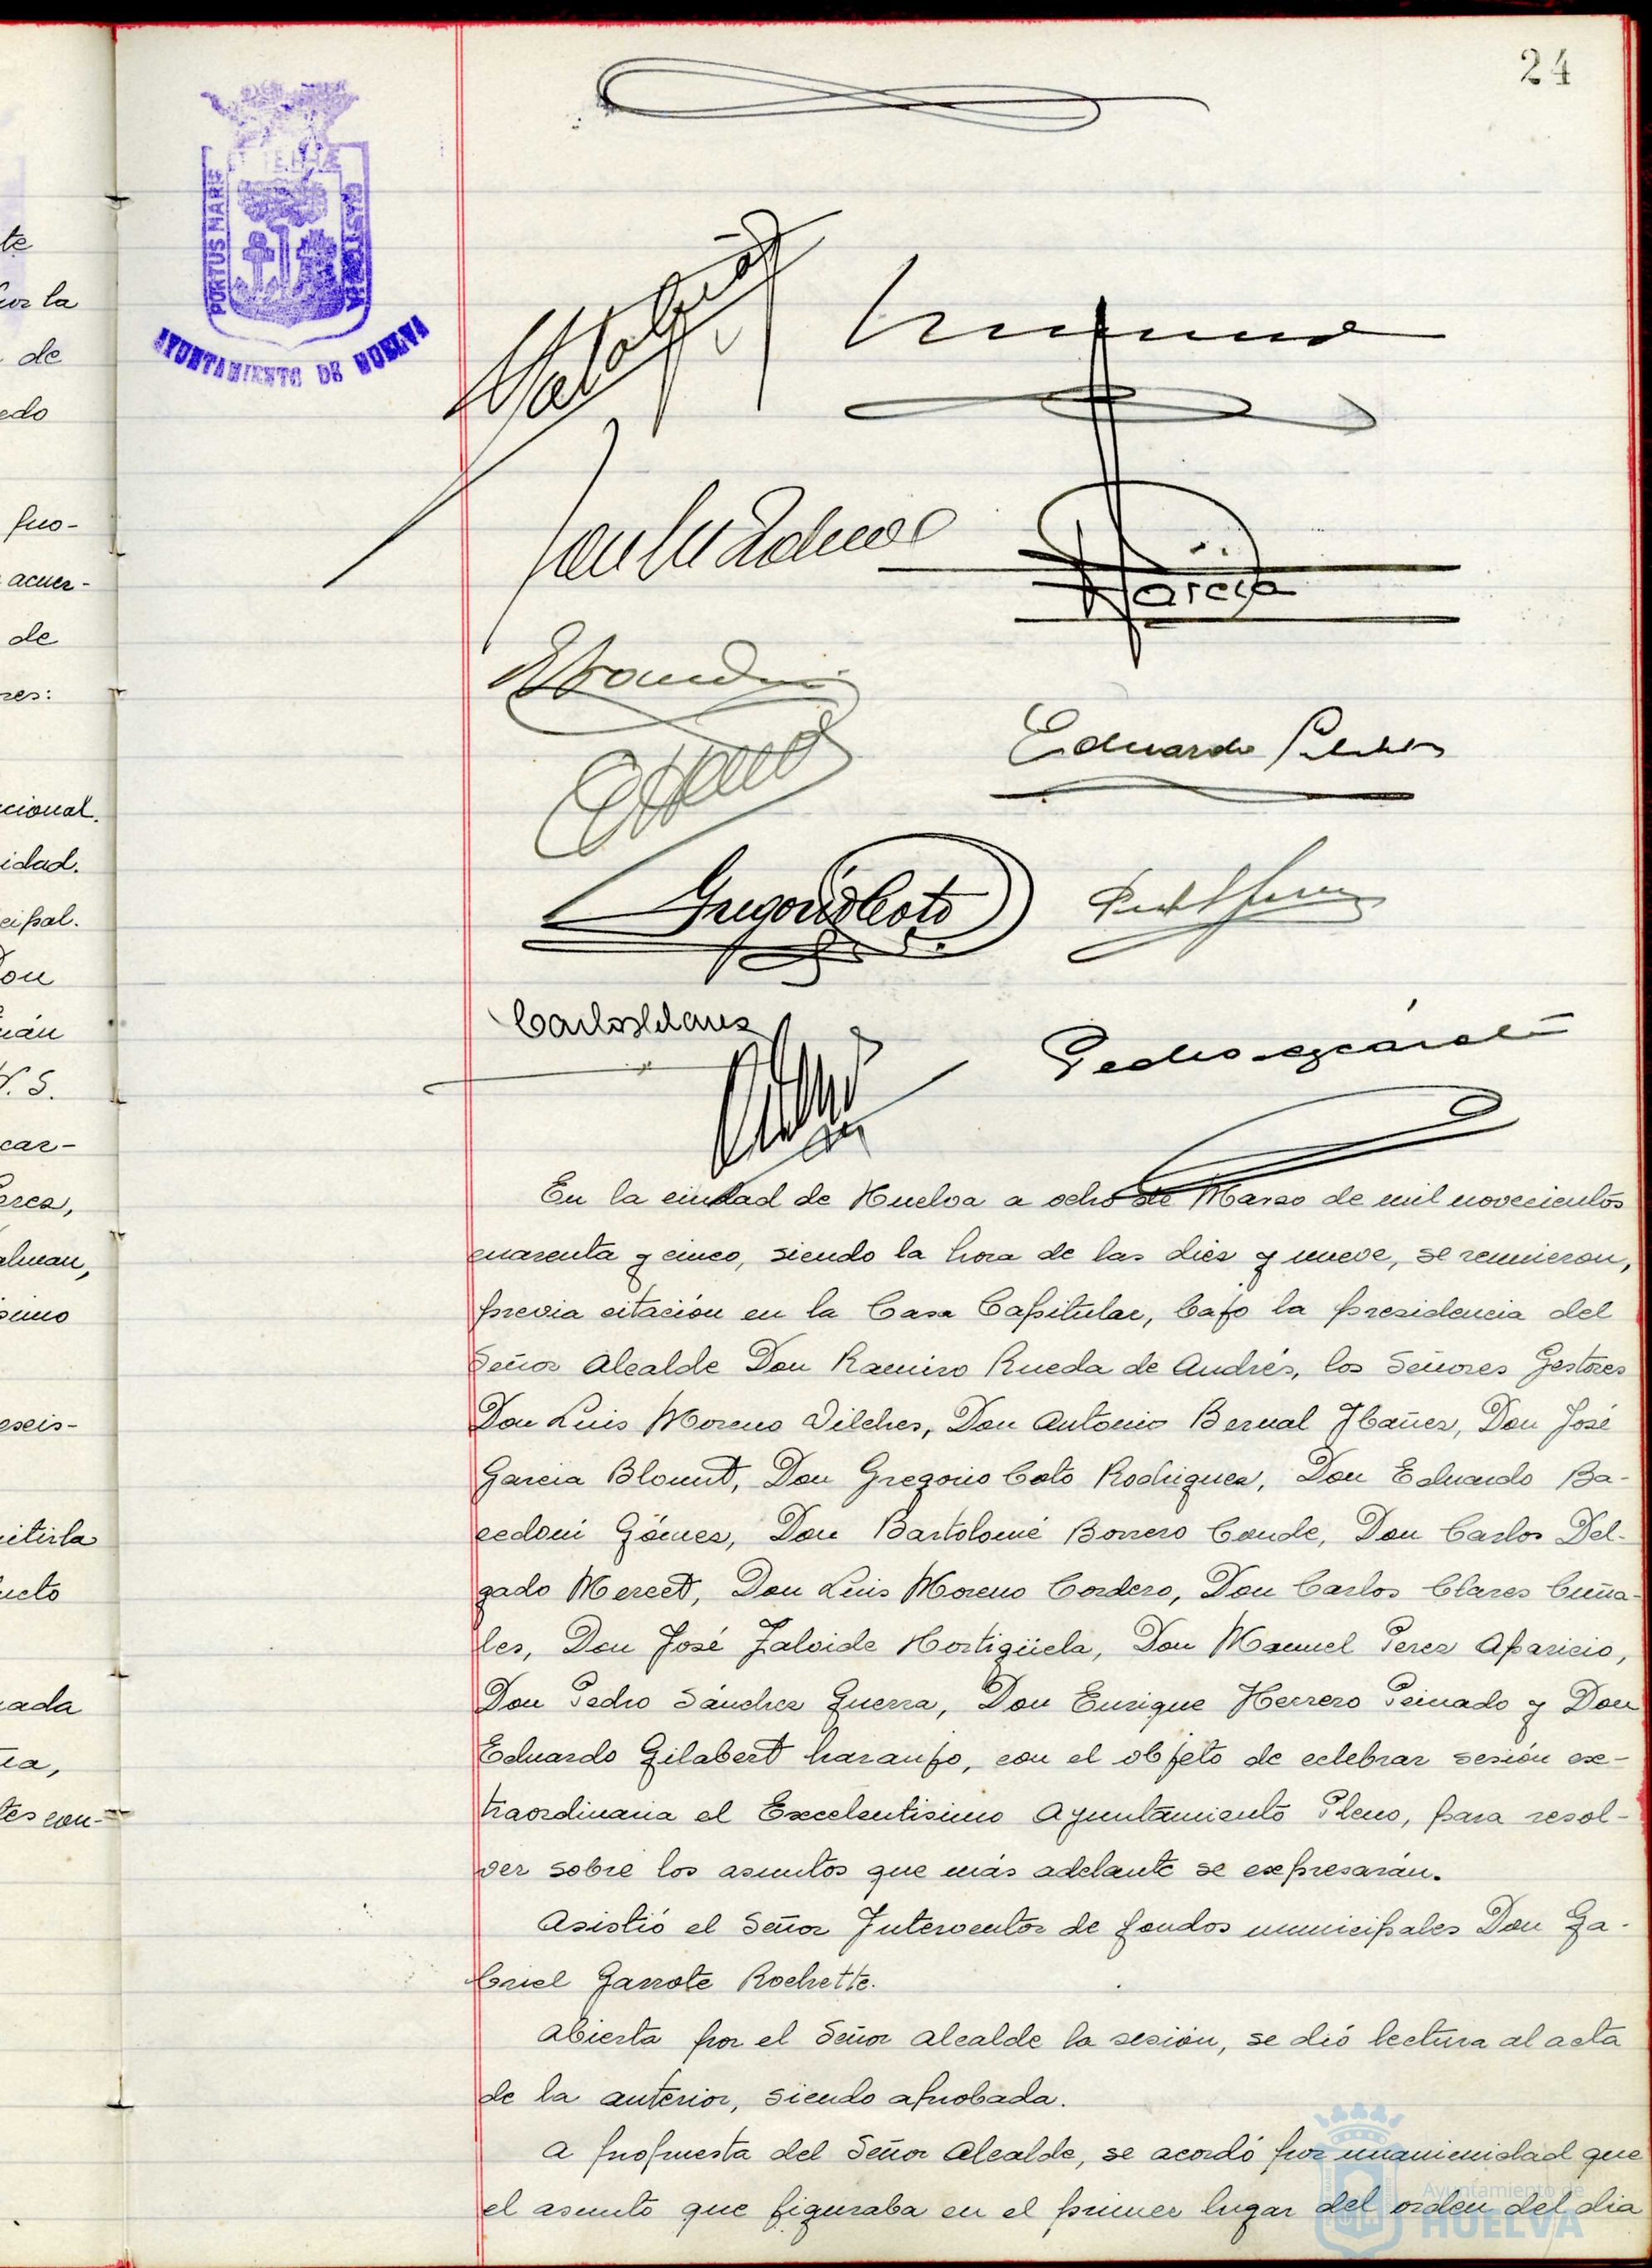 24
PORTUS MARIS
ET TERRÆ
CUSTODIA
AYUNTAMIENTO DE HUELVA
García
Eduardo
Gregorio Coto
Carlos Clares
Pedro
te
por la
de
edo
pro-
acuer-
de
res:
cional.
idad.
cipal.
Don
uán
V. S.
car-
erez,
simo
eseis-
itirla
ucto
ada
ia,
tes con-
En la ciudad de Huelva a ocho de Marzo de mil novecientos
cuarenta y cinco, siendo la hora de las diez y nueve, se reunieron,
previa citación en la Casa Capitular, bajo la presidencia del
Señor Alcalde Don Ramiro Rueda de Andrés, los Señores Gestores
Don Luis Moreno Vilches, Don Antonio Bernal Ibañez, Don José
Garcia Blount, Don Gregorio Coto Rodriguez, Don Eduardo Ba-
cedoni Gómez, Don Bartolomé Borrero Conde, Don Carlos Del-
gado Mercet, Don Luis Moreno Cordero, Don Carlos Clares Cuña-
les, Don José Zalvide Hortigüela, Don Manuel Perez Aparicio,
Don Pedro Sánchez Guerra, Don Enrique Herrero Peinado y Don
Eduardo Gilabert Naranjo, con el objeto de celebrar sesión ex-
traordinaria el Excelentisimo Ayuntamiento Pleno, para resol-
ver sobre los asuntos que más adelante se expresarán.
Asistió el Señor Interventor de fondos municipales Don Ga-
briel Garrote Rochette.
Abierta por el Señor Alcalde la sesión, se dió lectura al acta
de la anterior, siendo aprobada.
A propuesta del Señor Alcalde, se acordó por unanimidad que
el asunto que figuraba en el primer lugar del orden del dia
Ayuntamiento de
HUELVA